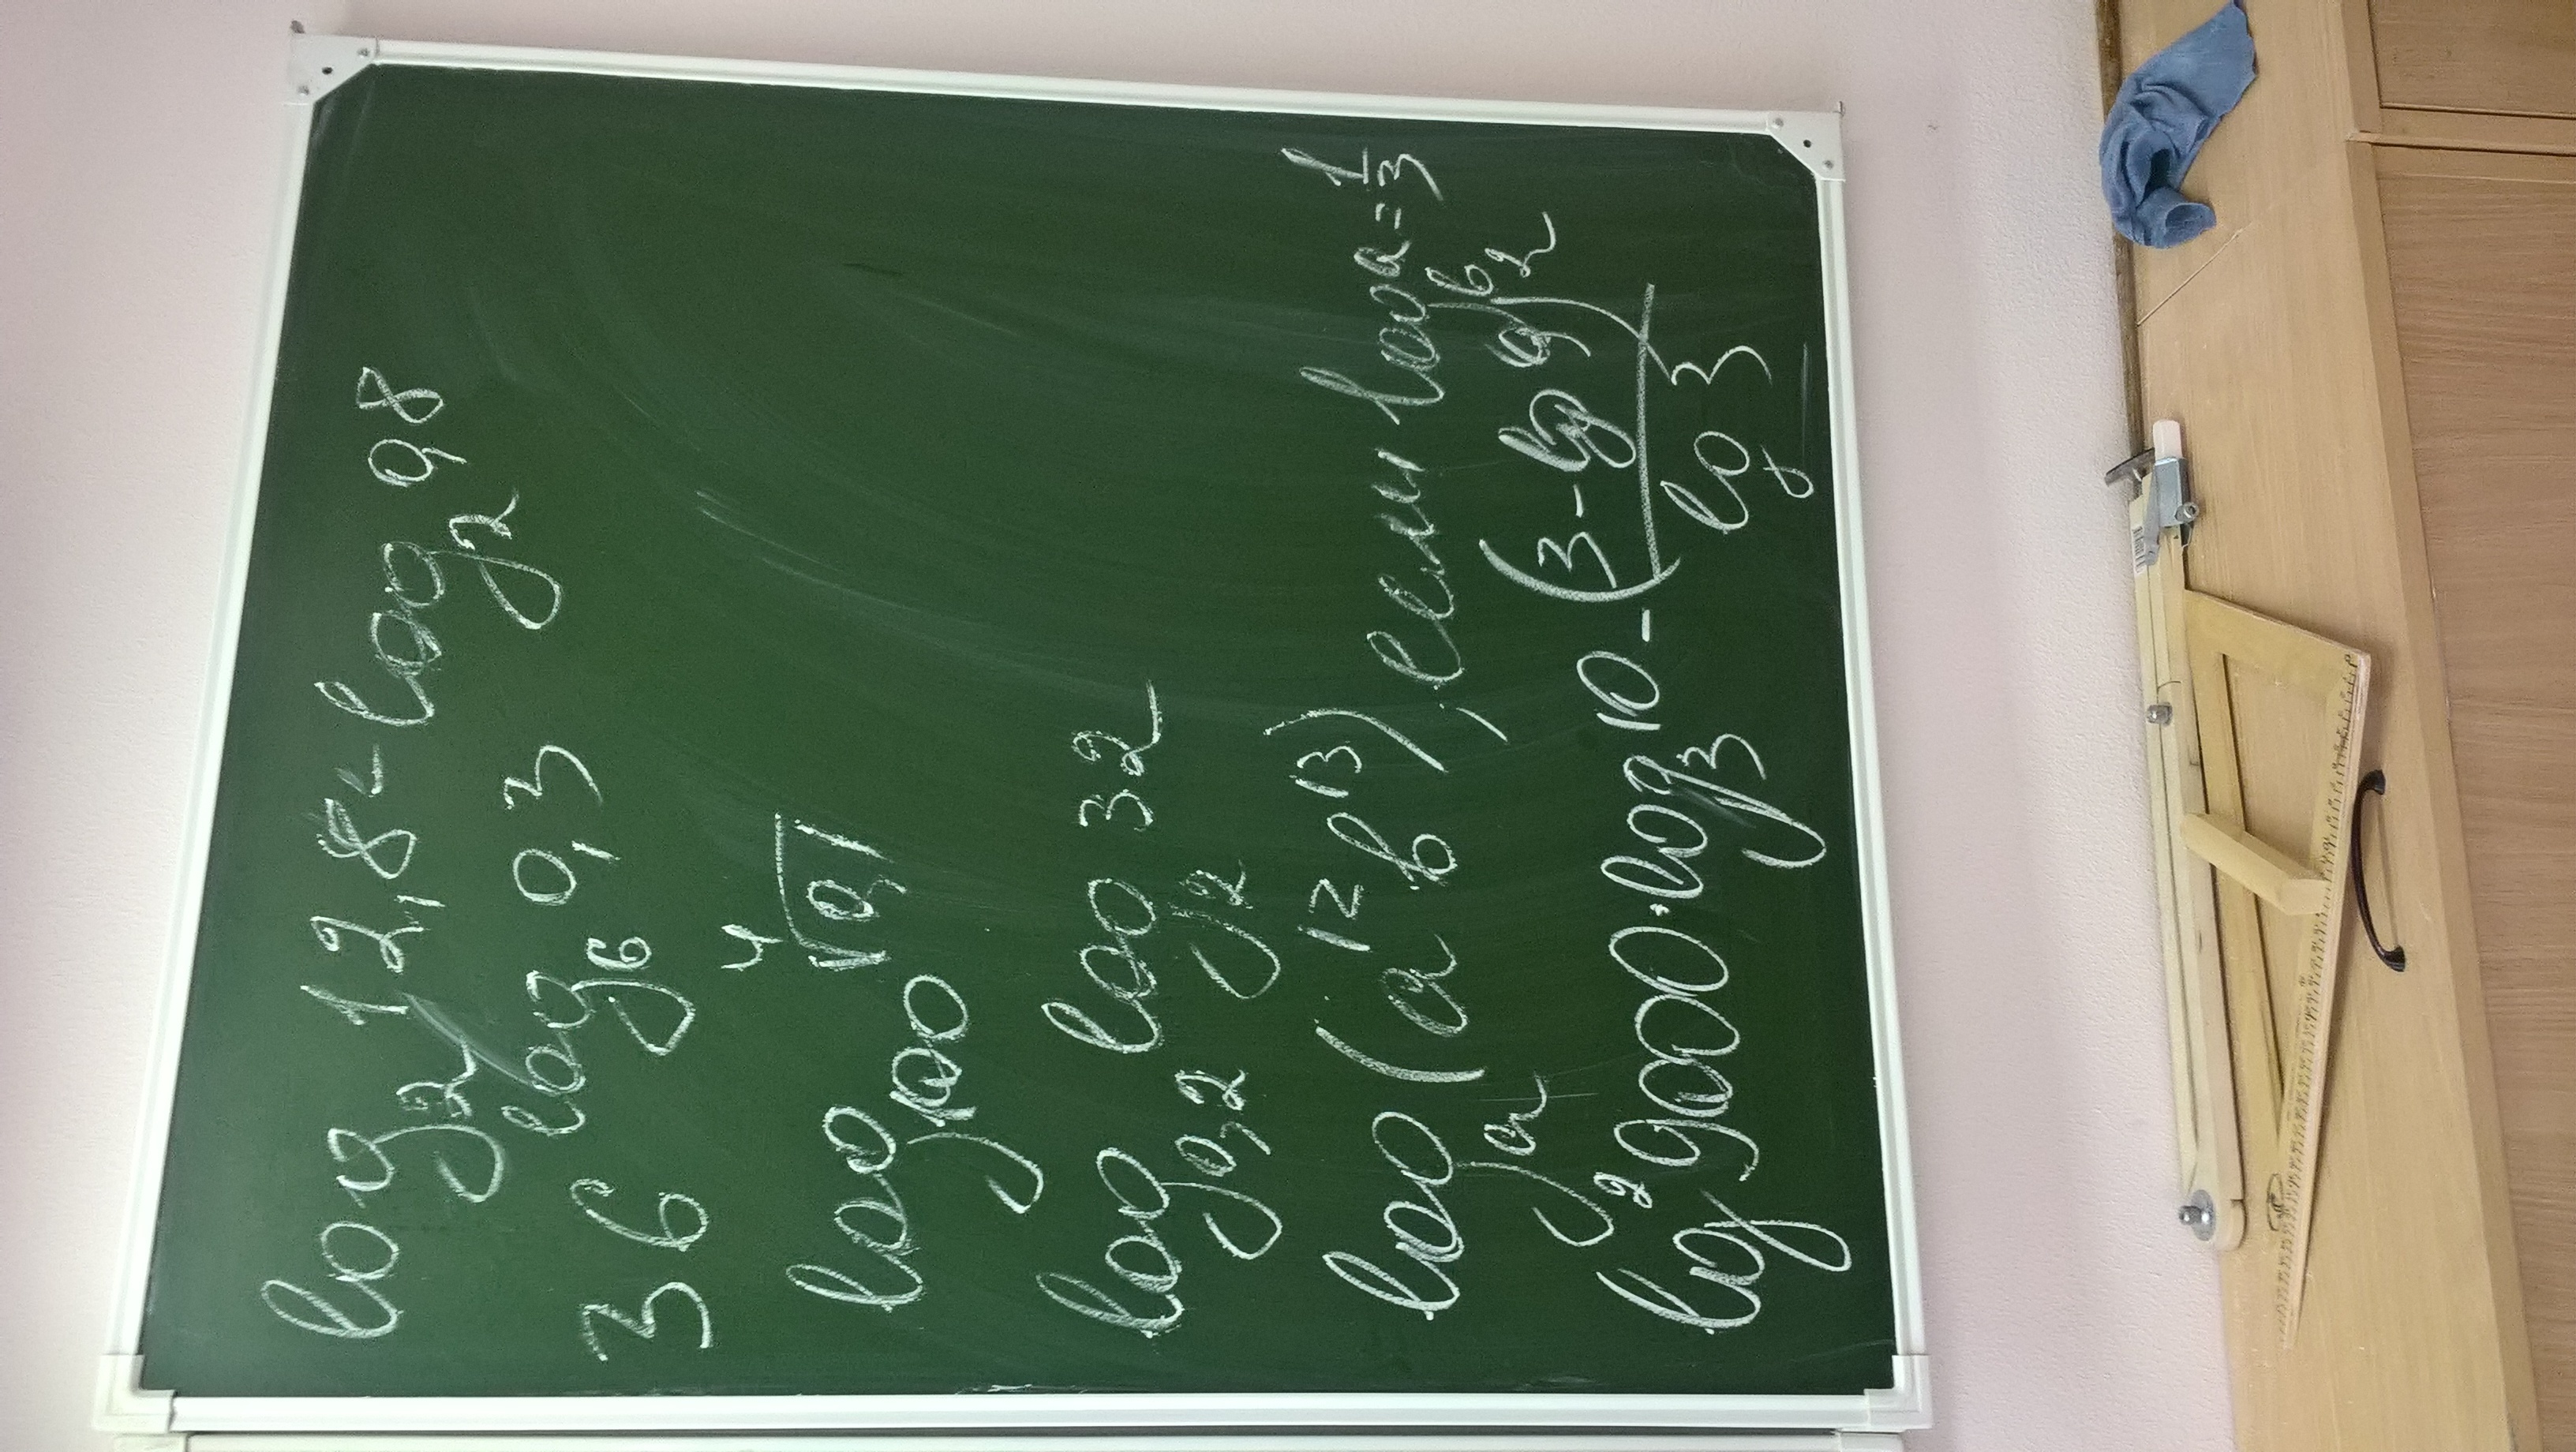 log₂ 12,8 - log₂ 0,8
36^(log₆ 0,3)
log₁₀₀ ⁴√0,1
log₀,₂ log₂ 32
logₐ (a¹² b¹³), если log_b a = 1/3
lg² 9000 · log₃ 10 - (3 - lg 9)² / lg 3